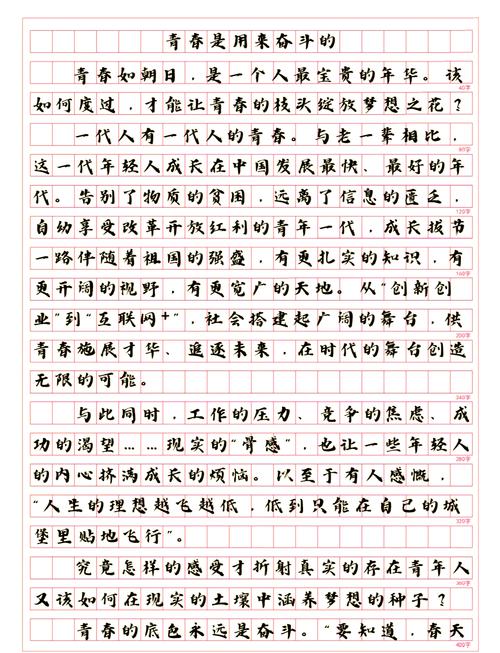 青春是用来奋斗的
青春如朝日，是一个人最宝贵的年华。该
40字
如何度过，才能让青春的枝头绽放梦想之花？
一代人有一代人的青春。与老一辈相比，
80字
这一代年轻人成长在中国发展最快、最好的年
代。告别了物质的贫困，远离了信息的匮乏，
120字
自幼享受改革开放红利的青年一代，成长拔节
一路伴随着祖国的强盛，有更扎实的知识，有
160字
更开阔的视野，有更宽广的天地。从“创新创
业”到“互联网+”，社会搭建起广阔的舞台，供
200字
青春施展才华、追逐未来，在时代的舞台创造
无限的可能。
240字
与此同时，工作的压力、竞争的焦虑、成
功的渴望……现实的“骨感”，也让一些年轻人
280字
的内心挤满成长的烦恼。以至于有人感慨，
“人生的理想越飞越低，低到只能在自己的城
320字
堡里贴地飞行”。
究竟怎样的感受才折射真实的存在青年人
360字
又该如何在现实的土壤中涵养梦想的种子？
青春的底色永远是奋斗。“要知道，春天
400字